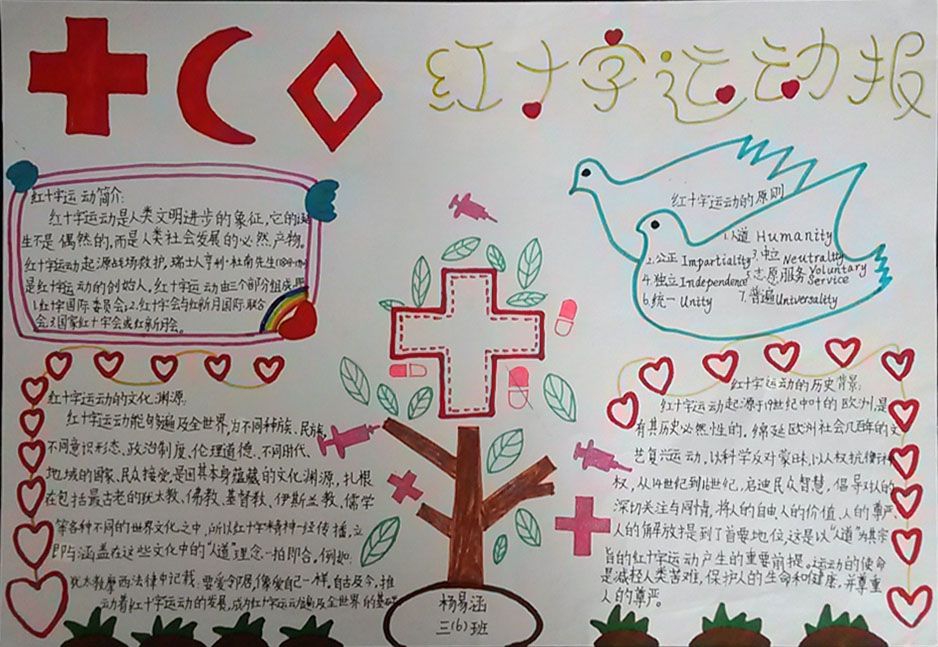 红十字运动报
红十字运动简介:
红十字运动是人类文明进步的象征,它的诞
生不是偶然的,而是人类社会发展的必然产物。
红十字运动起源战场救护,瑞士人亨利·杜南先生
是红十字运动的创始人,红十字运动由三个部分组成
1.红十字国际委员会;2.红十字会与红新月国际联合
会;3.国家红十字会或红新月会。
红十字运动的原则
1.人道 Humanity
2.公正 Impartiality 3.中立 Neutrality
4.独立 Independence 5.志愿服务 Voluntary Service
6.统一 Unity 7.普遍 Universality
红十字运动的文化渊源:
红十字运动能够遍及全世界,为不同种族、民族,
不同意识形态、政治制度、伦理道德、不同时代、
地域的国家、民众接受,是因其本身蕴藏的文化渊源,扎根
在包括最古老的犹太教、佛教、基督教、伊斯兰教、儒学
等各种不同的世界文化之中,所以红十字精神一经传播,立
即与涵盖在这些文化中的“人道”理念一拍即合,例如:
犹太教摩西法律中记载:要爱邻居,像爱自己一样,自古及今,推
动着红十字运动的发展,成为红十字运动遍及全世界的基础
红十字运动的历史背景:
红十字运动起源于19世纪中叶的欧洲,是
有其历史必然性的,绵延欧洲社会几百年的文
艺复兴运动,以科学反对蒙昧,以人权抗衡
权,从14世纪到16世纪,启迪民众智慧,倡导对人的
深切关注与同情,将人的自由人的价值,人的尊严
人的解放提到了首要地位,这是以“人道”为其宗
旨的红十字运动产生的重要前提。运动的使命
是减轻人类苦难,保护人的生命和健康,并尊重
人的尊严。
杨易涵
三(6)班